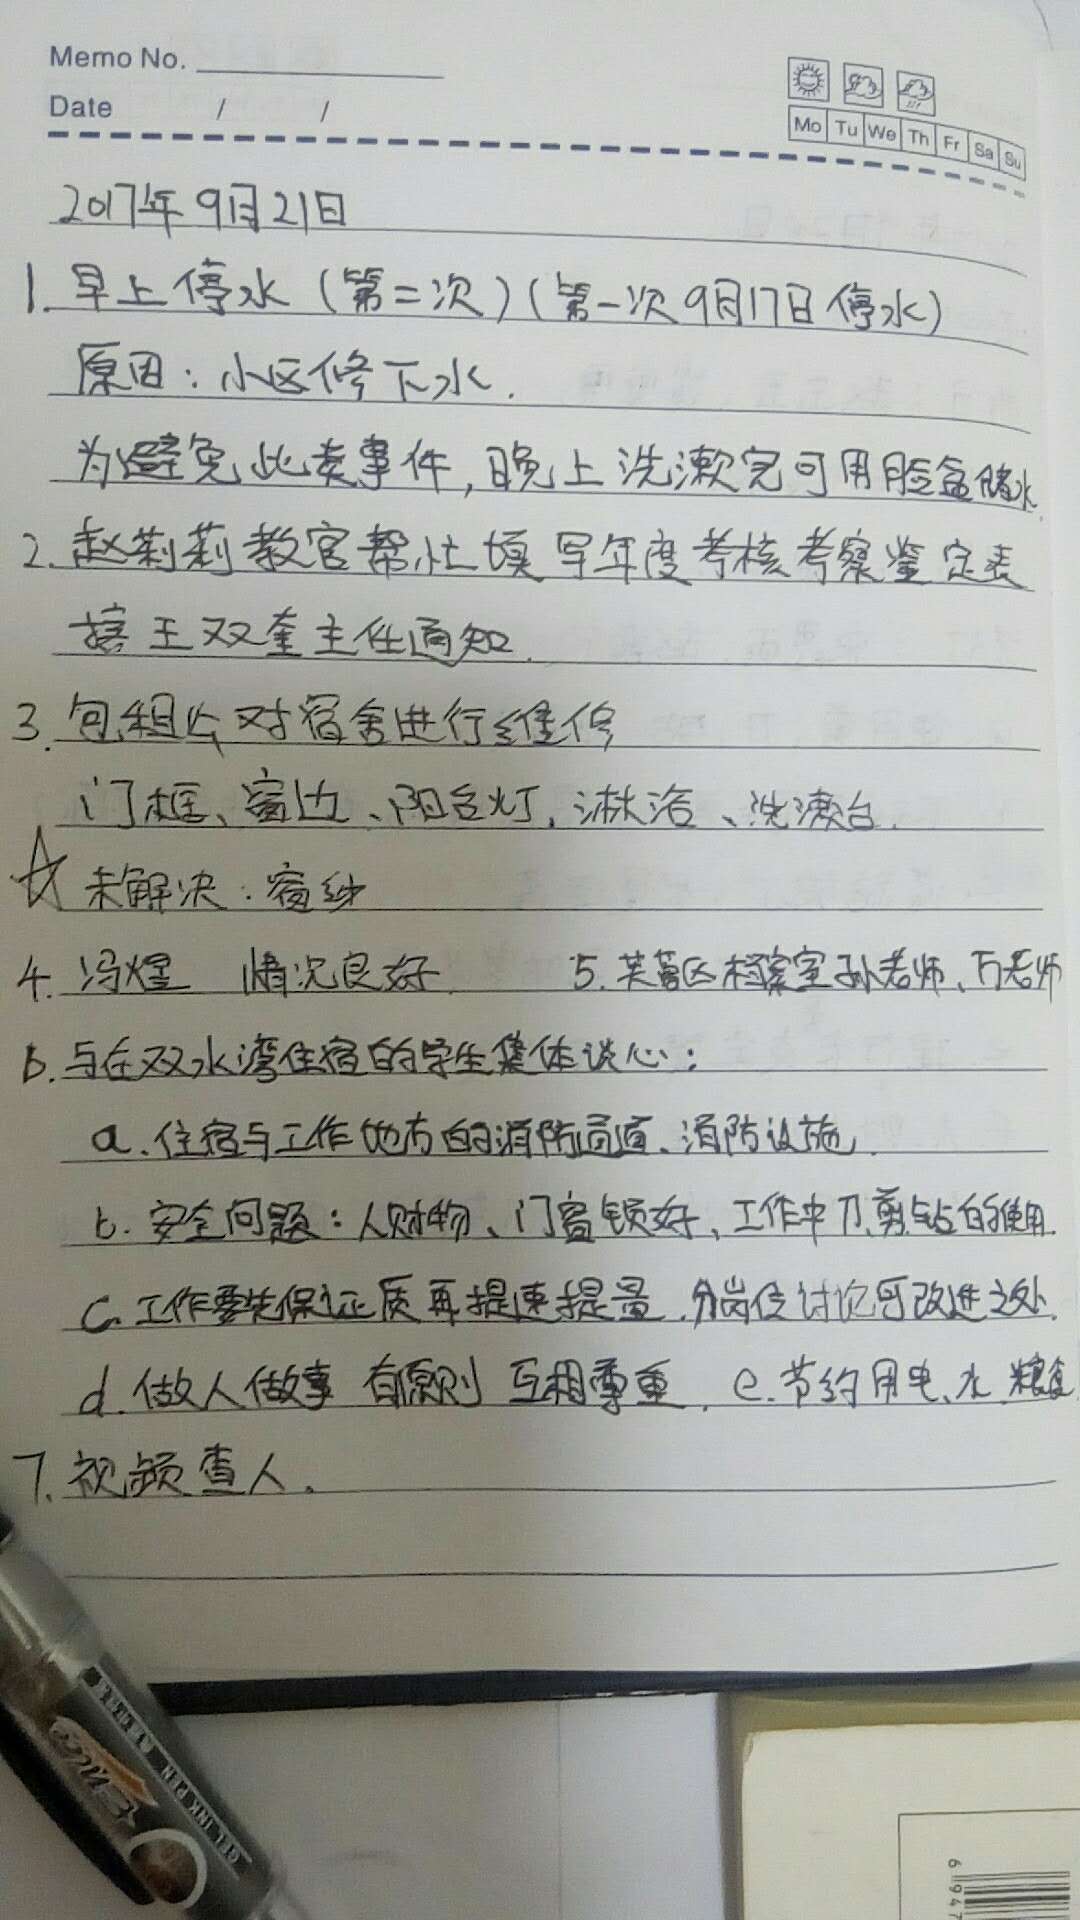 Memo No.
Date / /
Mo Tu We Th Fr Sa Su
2017年9月21日
1.早上停水（第二次）（第一次9月17日停水）
原因：小区修下水.
为避免此类事件,晚上洗漱完可用脸盆储水.
2.赵莉莉教官帮忙填写年度考核考察鉴定表
接王双奎主任通知.
3.包租公对宿舍进行维修
门框、窗边、阳台灯,淋浴、洗漱台.
☆未解决：窗纱
4.冯煜 情况良好. 5.芙蓉区档案室孙老师、万老师
6.与在双水湾住宿的学生集体谈心：
a.住宿与工作地方的消防通道、消防设施.
b.安全问题：人财物、门窗锁好、工作中刀,剪,钻的使用.
c.工作要先保证质再提速提量.分岗位讨论可改进之处.
d.做人做事 有原则 互相尊重. e.节约用电、水.粮食
7.视频查人.
GEL INK PEN
6 947